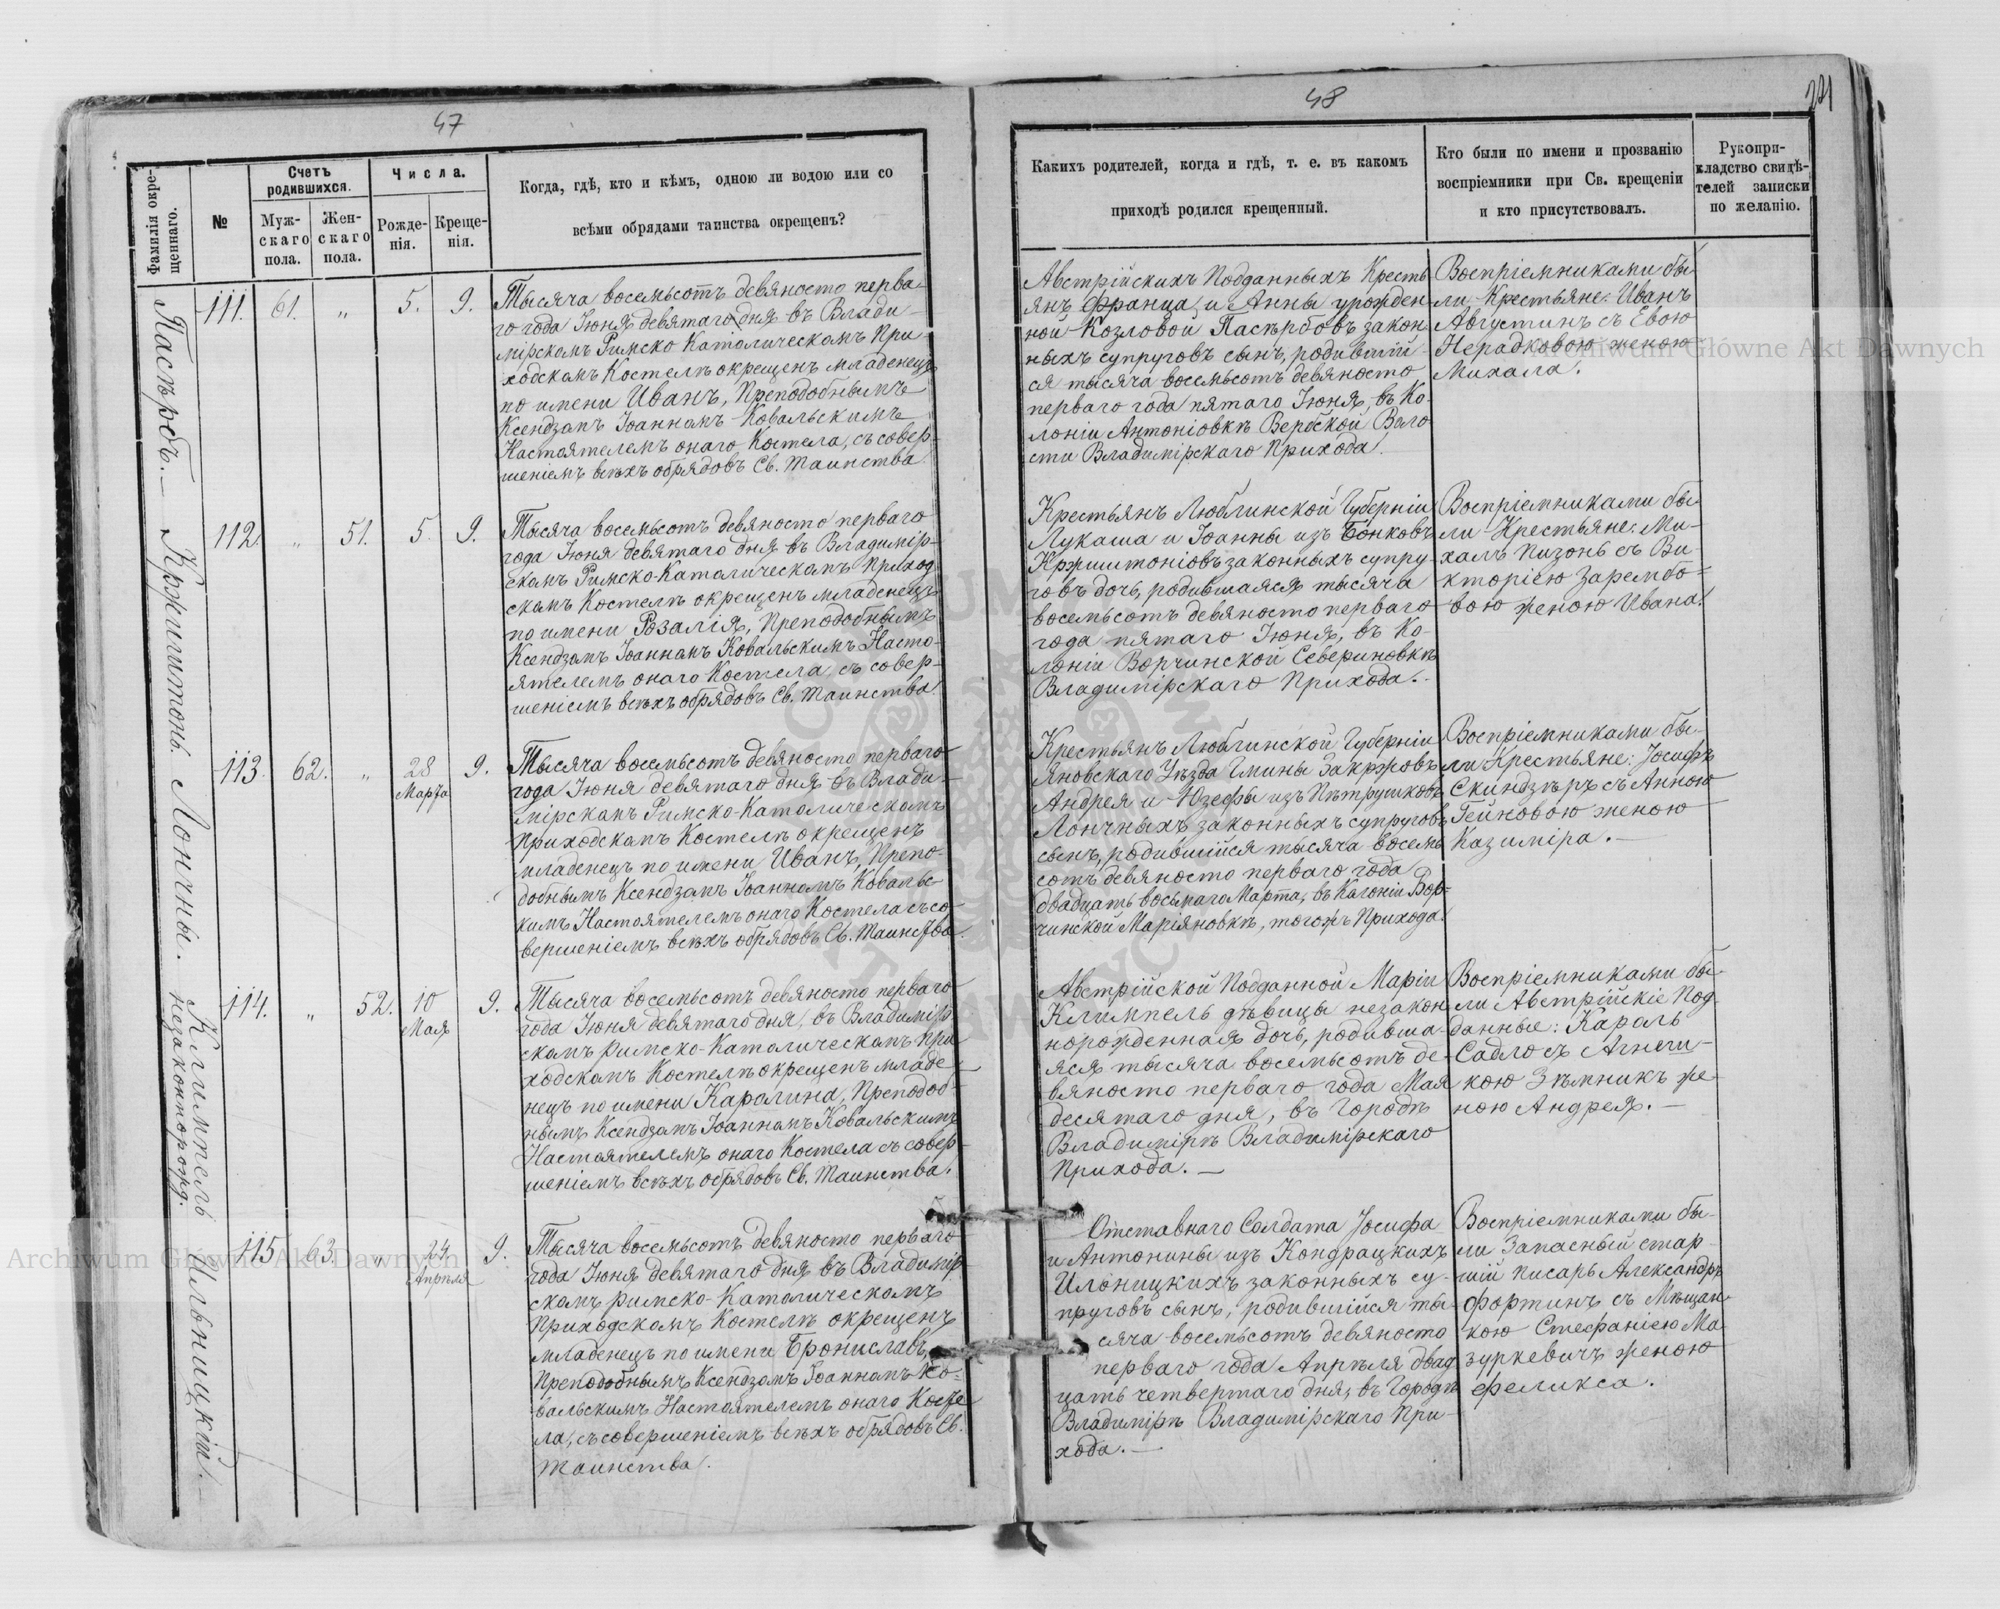 47
Фамилія окре-
щеннаго.
№
Счетъ
родившихся.
Муж-
скаго
пола.
Жен-
скаго
пола.
Числа.
Рожде-
нія.
Креще-
нія.
Когда, гдѣ, кто и кѣмъ, одною ли водою или со
всѣми обрядами таинства окрещенъ?
Пасѣрбъ.
111. 61. „ 5. 9.
Тысяча восемьсотъ девяносто перва-
го года Іюня девятаго дня въ Влади-
мірскомъ Римско Католическомъ При-
ходскомъ Костелѣ окрещенъ младенецъ
по имени Иванъ, Преподобнымъ
Ксендзомъ Іоанномъ Ковальскимъ
Настоятелемъ онаго Костела, съ совер-
шеніемъ всѣхъ обрядовъ Св. Таинства
Кржиштонь.
112. „ 51. 5. 9.
Тысяча восемьсотъ девяносто перваго
года Іюня девятаго дня въ Владимір-
скомъ Римско-Католическомъ Приход
скомъ Костелѣ окрещенъ младенецъ
по имени Розалія, Преподобнымъ
Ксендзомъ Іоанномъ Ковальскимъ Насто-
ятелемъ онаго Костела, съ совер-
шеніемъ всѣхъ обрядовъ Св. Таинства
Лончны.
113. 62. „ 28 Марта 9.
Тысяча восемьсотъ девяносто перваго
года Іюня девятаго дня въ Влади-
мірскомъ Римско-Католическомъ
Приходскомъ Костелѣ окрещенъ
младенецъ по имени Иванъ, Препо-
добнымъ Ксендзомъ Іоанномъ Ковальс-
кимъ Настоятелемъ онаго Костела съ со-
вершеніемъ всѣхъ обрядовъ Св. Таинства.
Климпель
незаконнорожд.
114. „ 52. 10 Мая 9.
Тысяча восемьсотъ девяносто перваго
года Іюня девятаго дня, въ Владимір
скомъ Римско-Католическомъ При
ходскомъ Костелѣ окрещенъ младе-
нецъ по имени Каролина, Преподоб-
нымъ Ксендзомъ Іоанномъ Ковальскимъ
Настоятелемъ онаго Костела съ совер-
шеніемъ всѣхъ обрядовъ Св. Таинства.
Ильницкій.
115 63. „ 24 Апрѣля 9.
Тысяча восемьсотъ девяносто перваго
года Іюня девятаго дня въ Владимір
скомъ Римско-Католическомъ
Приходскомъ Костелѣ окрещенъ
младенецъ по имени Брониславъ,
Преподобнымъ Ксендзомъ Іоанномъ Ко-
вальскимъ Настоятелемъ онаго Косте
ла, съ совершеніемъ всѣхъ обрядовъ Св.
Таинства.
48
221
Какихъ родителей, когда и гдѣ, т. е. въ какомъ
приходѣ родился крещенный.
Кто были по имени и прозванію
воспріемники при Св. крещеніи
и кто присутствовалъ.
Рукопри-
кладство свидѣ-
телей записки
по желанію.
Австрійскихъ Подданныхъ Кресть
янъ Франца и Анны урожден-
ной Козловой Пасѣрбовъ закон-
ныхъ супруговъ сынъ, родивший-
ся тысяча восемьсотъ девяносто
перваго года пятаго Іюня, въ Ко-
лоніи Антоніовкѣ Вербской Воло
сти Владимірскаго Прихода.
Воспріемниками бы-
ли Крестьяне: Иванъ
Августинъ съ Евою
Нерадковою женою
Михала.
Крестьянъ Люблинской Губерніи
Лукаша и Іоанны изъ Бонковъ
Кржиштоніовъ законныхъ супру-
говъ дочь, родившаяся тысяча
восемьсотъ девяносто перваго
года пятаго Іюня, въ Ко-
лоніи Ворчинской Севериновкѣ
Владимірскаго Прихода.
Воспріемниками бы-
ли Крестьяне: Ми-
халъ Пизонь съ Ви-
кторіею Зарембо-
вою женою Ивана.
Крестьянъ Люблинской Губерніи
Яновскаго Уѣзда Гмины Закржовъ
Андрея и Юзефы изъ Пѣтрушковъ
Лончныхъ законныхъ супруговъ
сынъ, родившійся тысяча восемь
сотъ девяносто перваго года
двадцать восьмаго Марта, въ Колоніи Вор-
чинской Маріяновкѣ, тогожъ Прихода.
Воспріемниками бы-
ли Крестьяне: Іосифъ
Скиндзѣръ съ Анною
Гейновою женою
Казиміра.
Австрійской Подданной Маріи
Климпель дѣвицы незакон
норожденная дочь, родивша-
яся тысяча восемьсотъ де-
вяносто перваго года Мая
десятаго дня, въ Городѣ
Владимірѣ Владимірскаго
Прихода.
Воспріемниками бы-
ли Австрійскіе Под
данные: Кароль
Садло съ Агнеш-
кою Зѣмникъ же-
ною Андрея.
Отставнаго Солдата Іосифа
и Антонины изъ Кондрацкихъ
Ильницкихъ законныхъ су-
пруговъ сынъ, родившійся ты-
сяча восемьсотъ девяносто
перваго года Апрѣля двад
цать четвертаго дня, въ Городѣ
Владимірѣ Владимірскаго При-
хода.
Воспріемниками бы-
ли Запасный стар-
шій писарь Александръ
Фортинъ съ Мѣщан-
кою Стефаніею Ма
зуркевичъ женою
Феликса.
Archiwum Główne Akt Dawnych
Archiwum Główne Akt Dawnych